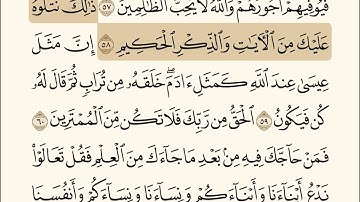 فَيُوَفِّيهِمْ أُجُورَهُمْ وَاللَّهُ لَا يُحِبُّ الظَّالِمِينَ ٥٧ ذَٰلِكَ نَتْلُوهُ
عَلَيْكَ مِنَ الْآيَاتِ وَالذِّكْرِ الْحَكِيمِ ٥٨ إِنَّ مَثَلَ
عِيسَىٰ عِندَ اللَّهِ كَمَثَلِ ءَادَمَ ۖ خَلَقَهُ مِن تُرَابٍ ثُمَّ قَالَ لَهُ
كُن فَيَكُونُ ٥٩ الْحَقُّ مِن رَّبِّكَ فَلَا تَكُن مِّنَ الْمُمْتَرِينَ ٦٠
فَمَنْ حَاجَّكَ فِيهِ مِن بَعْدِ مَا جَاءَكَ مِنَ الْعِلْمِ فَقُلْ تَعَالَوْا
نَدْعُ أَبْنَاءَنَا وَأَبْنَاءَكُمْ وَنِسَاءَنَا وَنِسَاءَكُمْ وَأَنفُسَنَا